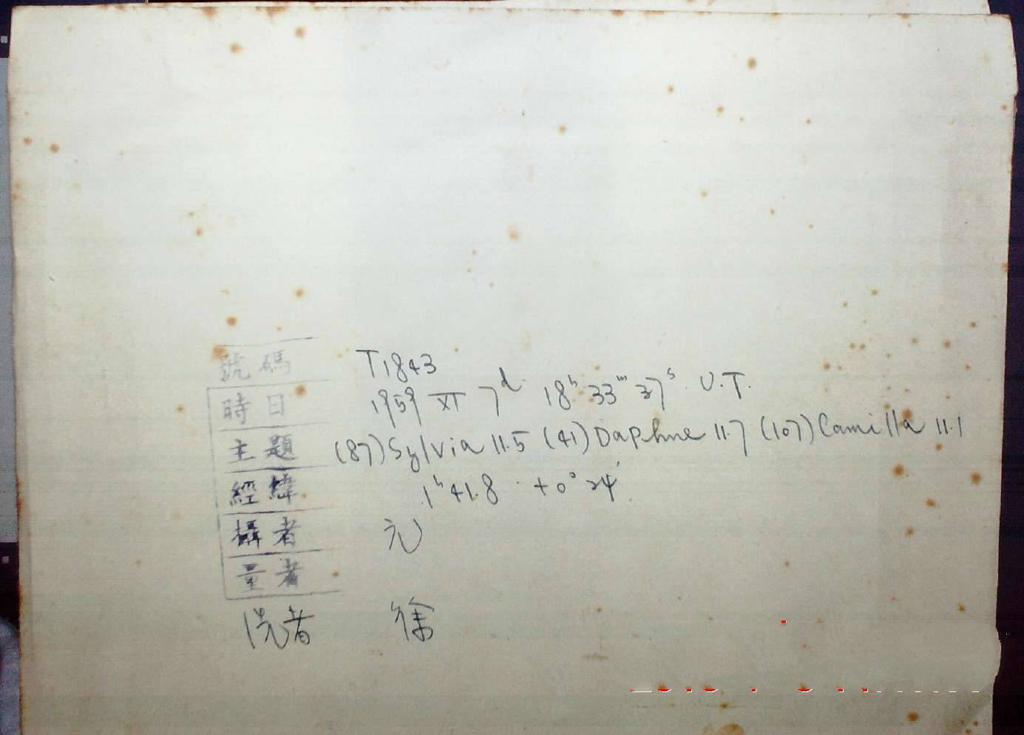 號碼 T1843
時日 1959 XI 7d 18h 33m 37s U.T.
主題 (87) Sylvia 11.5 (41) Daphne 11.7 (107) Camilla 11.1
經緯 1h 41.8 +0° 24'
攝者 元
量者
洗者 徐